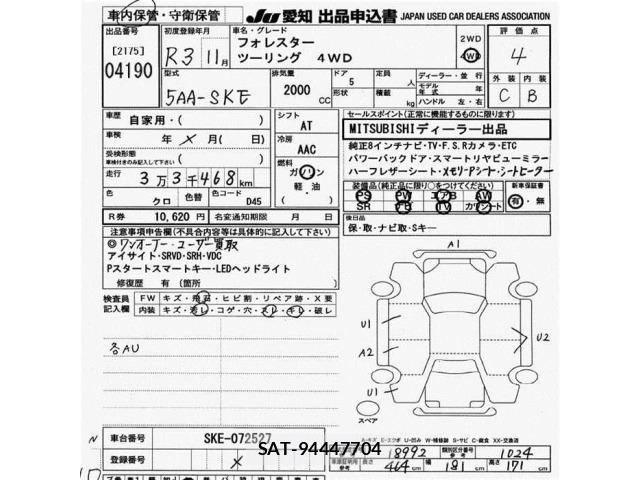 車内保管・守衛保管
JU 愛知 出品申込書 JAPAN USED CAR DEALERS ASSOCIATION
出品番号
[2175]
04190
初度登録年月
R3 11月
車名・グレード
フォレスター
ツーリング 4WD
2WD
4WD
評価点
4
型式
5AA-SKE
排気量
2000 CC
ドア
5
形状
定員
人
積載
kg
ディーラー・並行
モデル年式 年
ハンドル 左・右
外装
C
内装
B
車歴
自家用・( )
車検
年 X 月( )
受検形態
車検付きのみ記入して下さい
( )
走行
3万3千468km
色
クロ
色替
色コード
D45
R券 10,620 円
名変通知期限 月 日
シフト
AT
冷房
AAC
燃料
ガソリン
軽・油
( )
セールスポイント(正常に機能するものに限ります)
MITSUBISHIディーラー出品
純正8インチナビ・TV・F.S.Rカメラ・ETC
パワーバックドア・スマートリヤビューミラー
ハーフレザーシート・メモリーPシート・シートヒーター
装備品(純正品に限り○をつけてください)
PS PW エアB AW
SR PB TV カワシート
新車保証書
有・無
後日品
保・取・ナビ取・Sキー
注意事項申告欄(不具合内容等は具体的に記入して下さい)
◎ワンオーナー・ユーザー買取
アイサイト・SRVD・SRH・VDC
Pスタートスマートキー・LEDヘッドライト
修復歴 有(箇所 )
検査員記入欄
FW キズ・飛石・ヒビ割・リペア跡・X要
内装 キズ・汚レ・コゲ・穴・スレ・キレ・破レ
各AU
A1
U1
A2
U1
U2
スペア
A-キズ E-エクボ U-凹み W-補修跡 S-サビ C-腐食 XX-交換済
車台番号
SKE-072527
登録番号
X
SAT-94447704
18992
類別区分番号
参考
1024
車庫証明用
参考
長さ
464 cm
幅
181 cm
高さ
171 cm